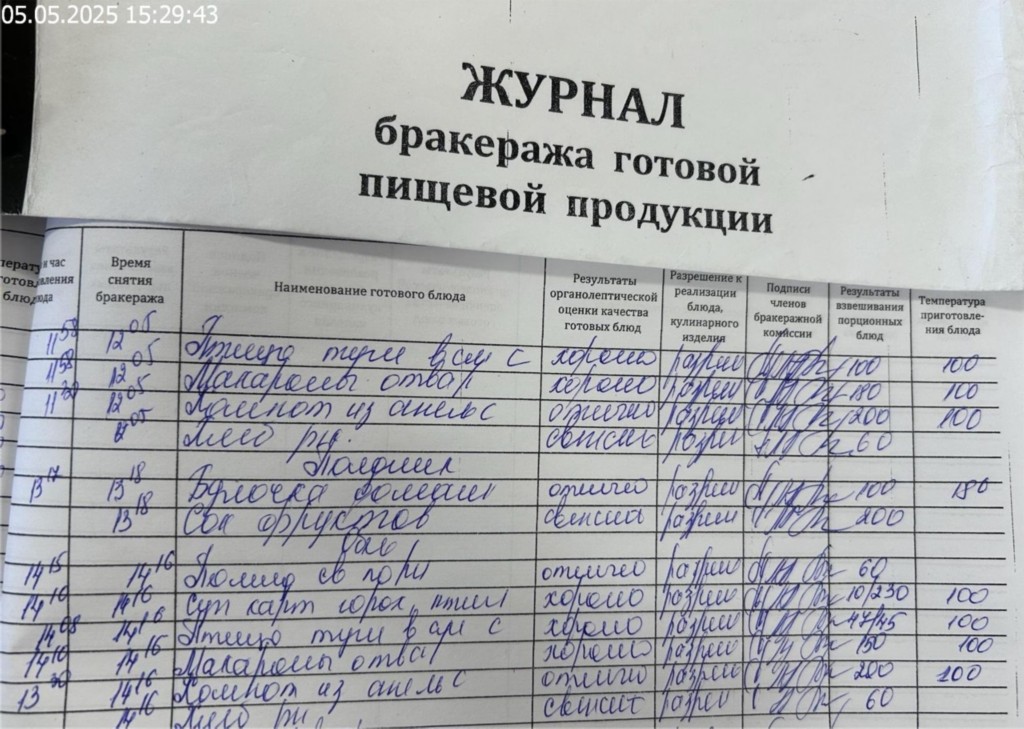 05.05.2025 15:29:43
ЖУРНАЛ
бракеража готовой
пищевой продукции
и час
Время
снятия
бракеража
Наименование готового блюда
Результаты
органолептической
оценки качества
готовых блюд
Разрешение к
реализации
блюда,
кулинарного
изделия
Подписи
членов
бракеражной
комиссии
Результаты
взвешивания
порционных
блюд
Температура
приготовле-
ния блюда
11 58 12 05 Птица туш в см с хорошо разреш 100 100
11 58 12 05 Макароны отвар хорошо разреш 180 100
11 30 12 05 Компот из апельс отлично разреш 200 100
05 Хлеб рж. свежий разреш 60
Полдник
13 17 13 18 Булочка домашн отлично разреш 100 180
13 18 Сок фруктов разреш 200
14 15 14 16 Помид св пори отлично разреш 60
14 10 14 16 Суп карт горох птиц хорошо разреш 10/230 100
14 08 14 16 Птица туш в см с хорошо разреш 47/45 100
14 10 14 16 Макароны отвар хорошо разреш 150 100
13 30 14 16 Компот из апельс отлично разреш 200 100
14 16 Хлеб рж свежий разреш 60